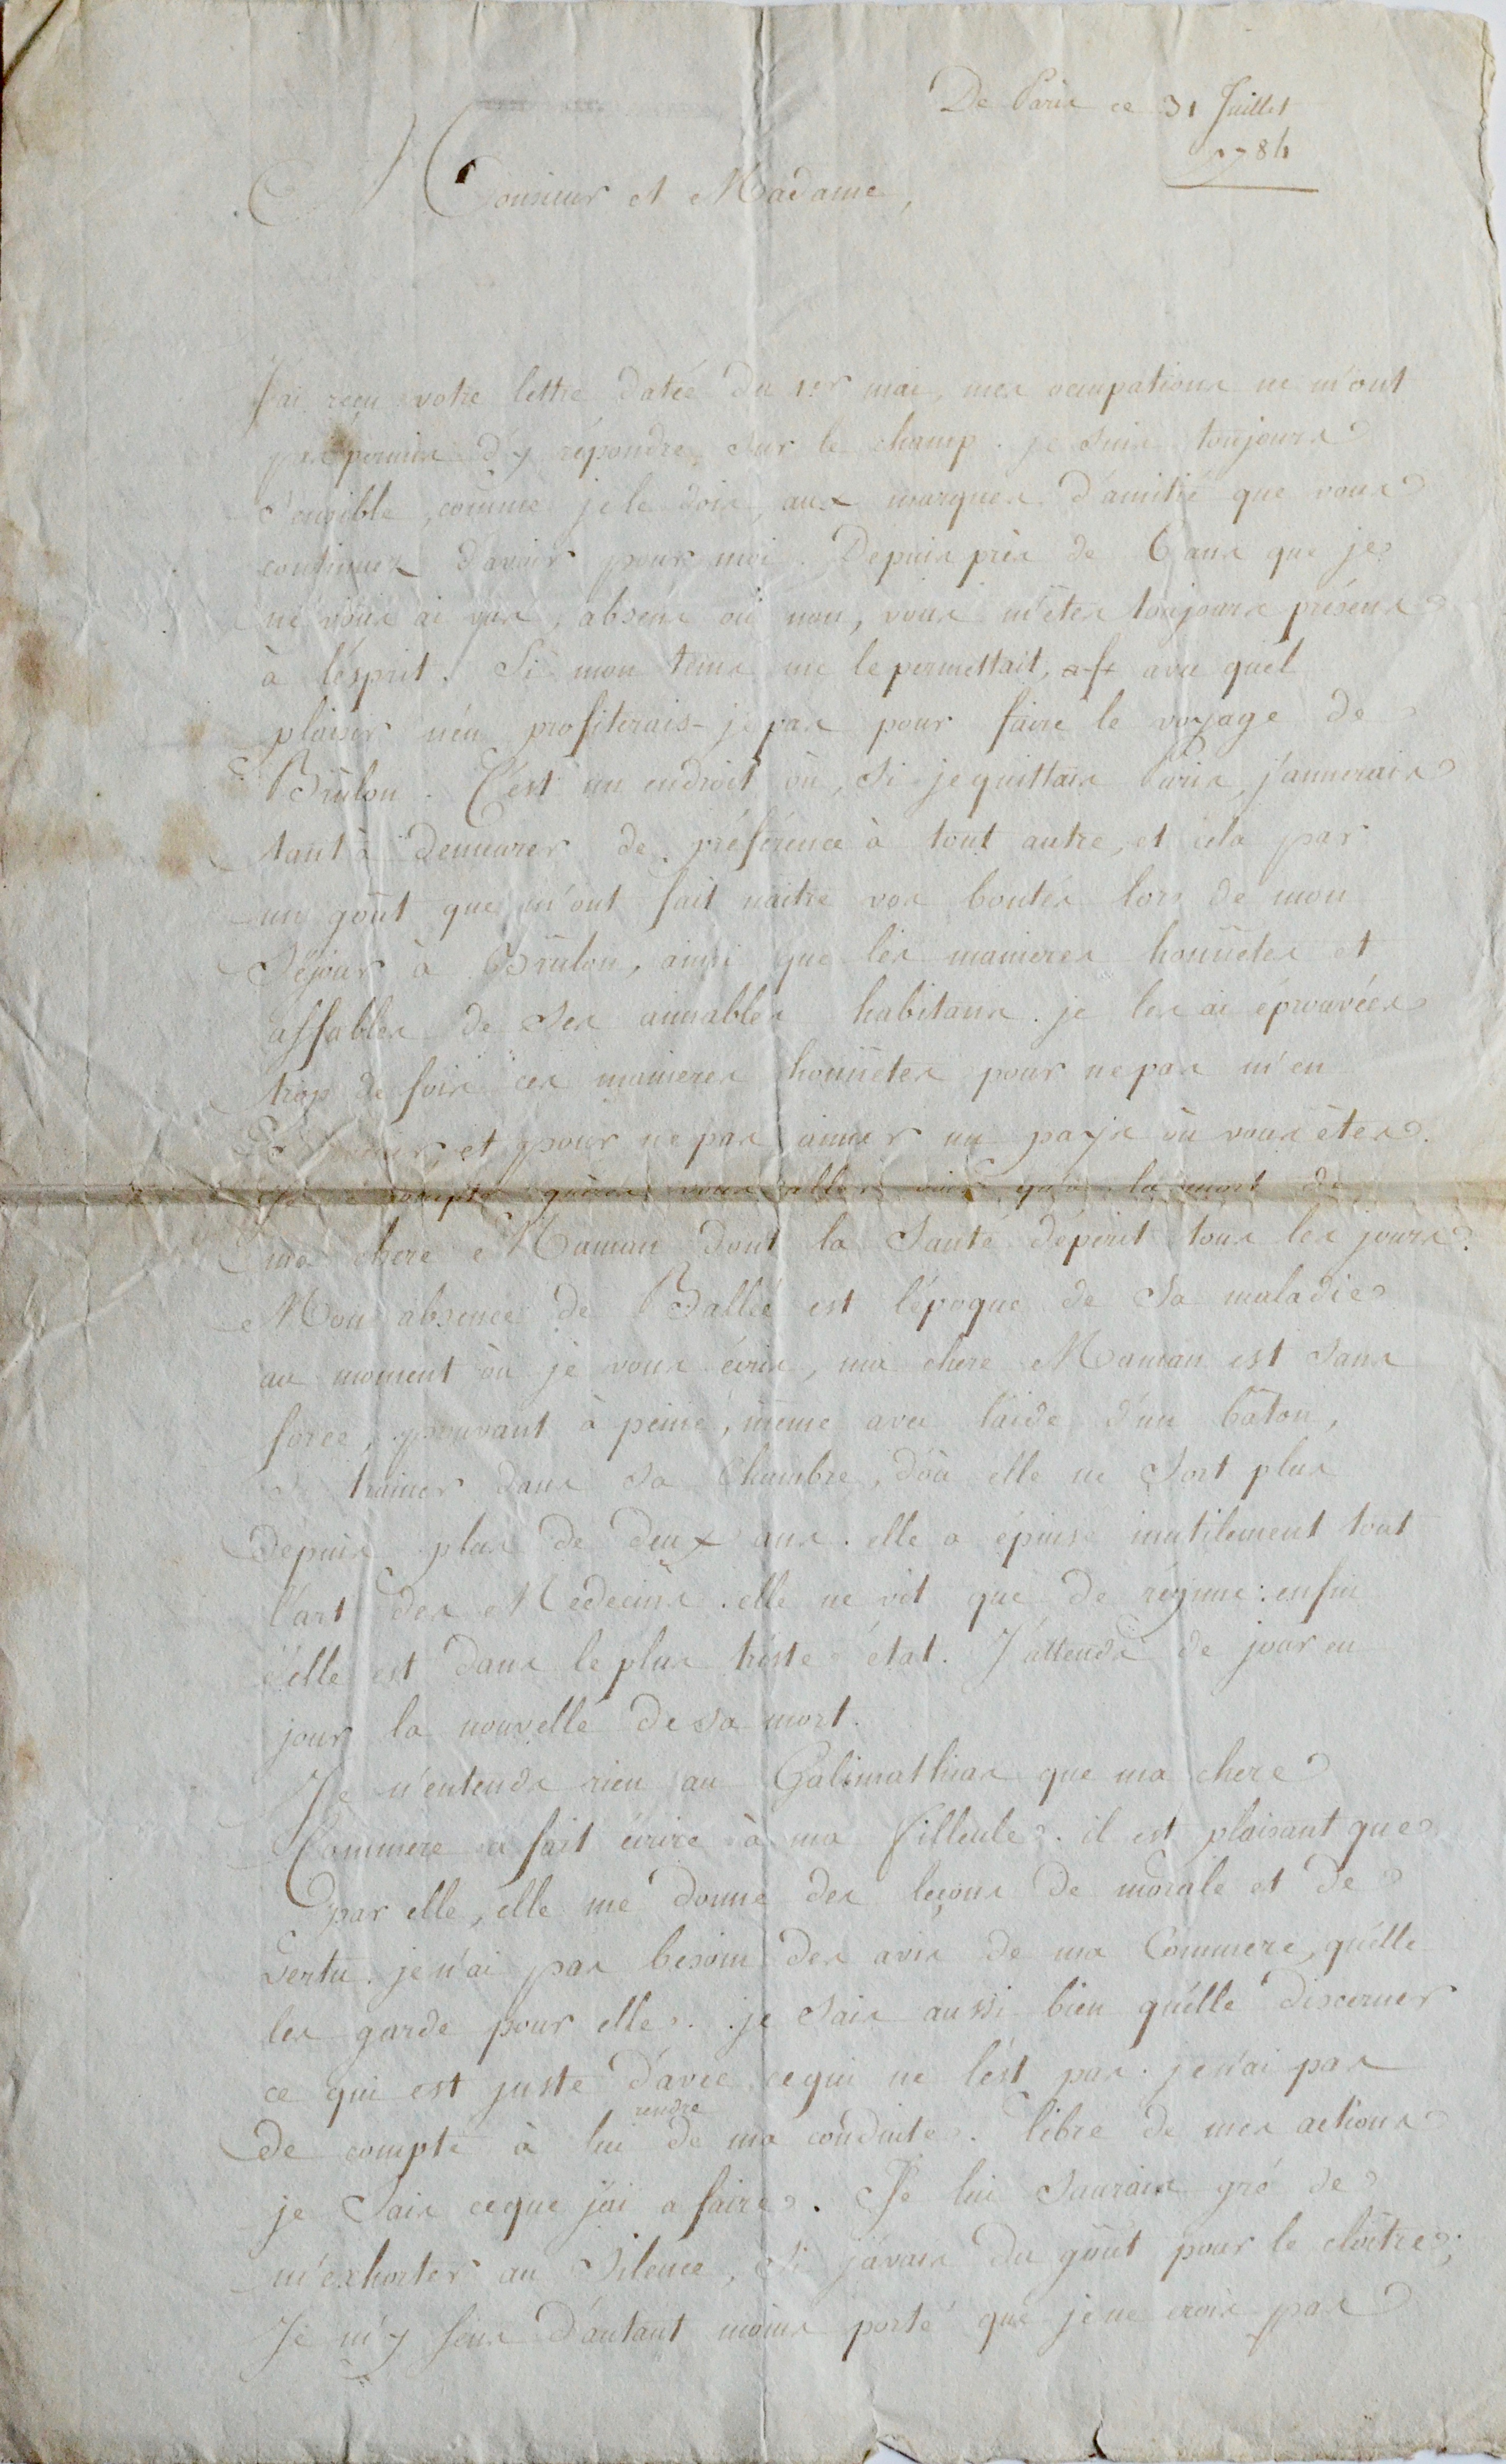 De Paris ce 31 Juillet
1784
Monsieur et Madame,
J'ai reçu votre lettre datée du 1er mai, mes occupations ne m'ont
pas permis d'y répondre sur le champ. je suis toujours
sensible, comme je le dois, aux marques d'amitié que vous
continuez d'avoir pour moi. Depuis près de 6 ans que je
ne vous ai vus, absens ou non, vous m'êtes toujours présens
à l'esprit. Si mon tems me le permettait, avec quel
plaisir n'en profiterais-je pas pour faire le voyage de
Brûlon. C'est un endroit où, si je quittais Paris, j'aimerais
tant à demeurer de préférence à tout autre, et cela par
un goût que m'ont fait naitre vos bontés lors de mon
Séjour à Brûlon, ainsi que les manieres honnêtes et
affables de ses aimables habitans. je les ai éprouvées
trop de fois ces manieres honnêtes pour ne pas m'en
et pour ne pas aimer un pays où vous êtes.
Je compte vous aller voir qu'à la mort de
ma chere Maman dont la Santé dépérit tous les jours.
Mon absence de Ballée est l'époque de sa maladie
au moment où je vous écris, ma chere Maman est sans
force, pouvant à peine, même avec l'aide d'un bâton,
se trainer dans sa Chambre, d'où elle ne sort plus
depuis plus de deux ans. elle a épuisé inutilement tout
l'art des Médecins. elle ne vit que de régime: enfin
elle est dans le plus triste état. J'attends de jour en
jour la nouvelle de sa mort.
Je n'entends rien au Galimathias que ma chere
Commere a fait écrire à ma filleule. il est plaisant que
par elle, elle me donne des leçons de morale et de
vertu. je n'ai pas besoin des avis de ma Commere, qu'elle
les garde pour elle. je sais aussi bien qu'elle discerner
ce qui est juste d'avec ce qui ne l'est pas. je n'ai pas
de compte à lui rendre de ma conduite. libre de mes actions
je sais ce que j'ai a faire. Je lui saurais gré de
m'exhorter au Silence, si j'avais du goût pour le cloître;
Je m'y sens d'autant moins porté que je ne crois pas